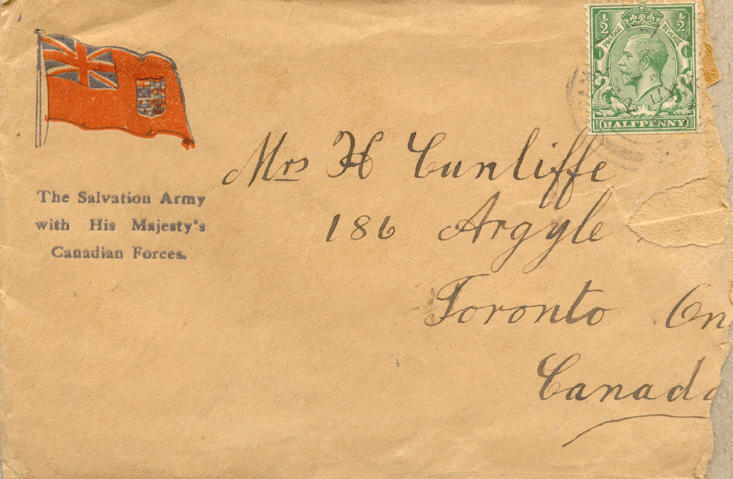 1/2 1/2
HALFPENNY
The Salvation Army
with His Majesty's
Canadian Forces.
Mrs H Cunliffe
186 Argyle
Toronto On
Canada